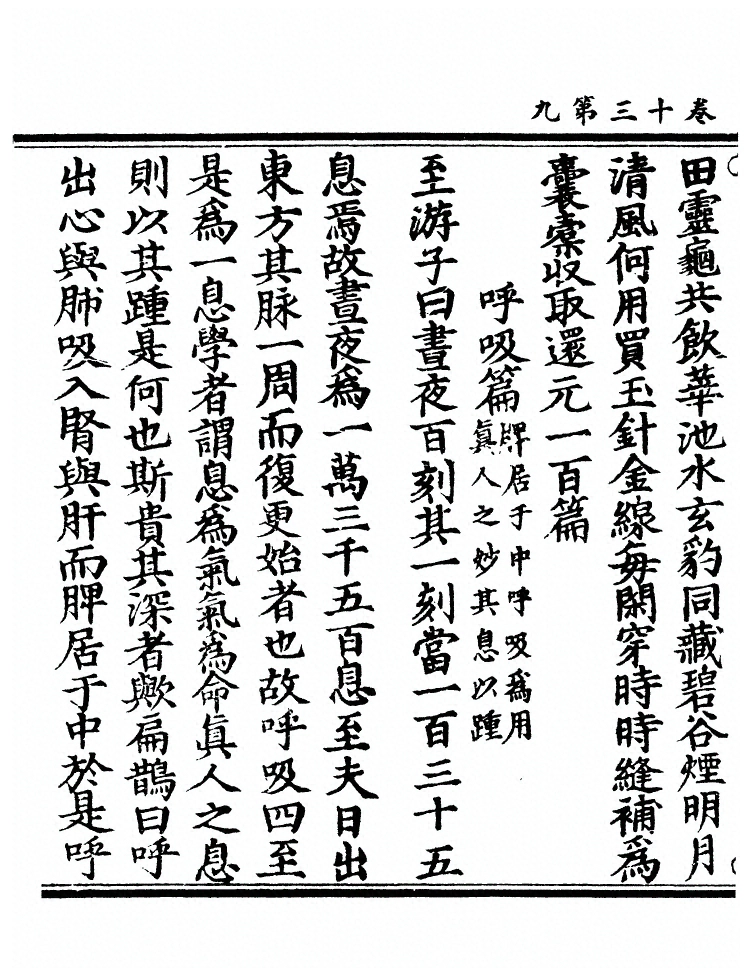 卷十三第九
田靈龜共飲華池水玄豹同藏碧谷煙明月
清風何用買玉針金線每閑穿時時縫補為
囊橐收取還元一百篇
呼吸篇
脾居于中呼吸爲用
眞人之妙其息以踵
至游子曰晝夜百刻其一刻當一百三十五
息焉故晝夜爲一萬三千五百息至夫日出
東方其脉一周而復更始者也故呼吸四至
是爲一息學者謂息爲氣氣爲命眞人之息
則以其踵是何也斯貴其深者歟扁鵲曰呼
出心與肺吸入腎與肝而脾居于中於是呼